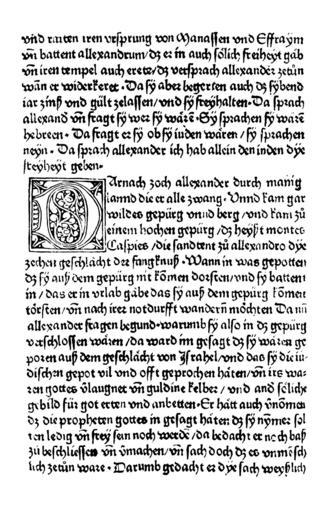 vnd ratten iren vrsprung von Manassen vnd Effraym
vñ battent allexandrum/dz er in auch sölich freiheyt gäb
vñ iren tempel auch erete/dz versprach allexander zetůn
wañ er widerkeret · Da sy aber begerten auch dz sybend
iar zinß vnd gült zelassen/vnd sy freyhalten · Da sprach
allexand vñ fragt sy wer sy wäre · Sy sprachen sy wäre
hebreen · Da fragt er sy ob sy iuden wären/sy sprachen
neyn · Da sprach allexander ich hab allein den inden dye
freyheyt geben ·
DArnach zoch allexander durch manig
lannd die er alle zwang · Vnnd kam gar
wildes gepürg vnnd berg/vnd kam zů
einem hochen gepürg/dz heyßt montes
Caspies/die sandtent zů allexandro dye
zechen geschlächt der fangknuß · Wann in was gepotten
dz sy auß dem gepürg nit kömen dorsten/vnd sy battent
in/das er in vrlab gäbe das sy auß dem gepürg kömen
törsten/vñ nach irer notdurfft wandern möchten Da nũ
allexander fragen begund · warumb sy also in dz gepürg
verschlossen wären/da ward im gesagt dz sy wären ge
poren auß dem geschlächt von Jsrahel/vnd das sy die iu-
dischen gepot vil vnd offt geprochen häten/vñ ire wa-
ren gottes vlaugnet vñ guldine kelber/vnd and söliche
gebild für got erten vnd anbetten · Er hätt auch vnomen
dz die propheten gottes in gesagt häten dz sy nymer sol
ten ledig vñ frey sein noch werde/da bedacht er noch baß
zů beschliessen vñ vmachen/vñ sach doch dz es vnmensch
lich zetůn ware · Darumb gedacht er dye sach weyßlich